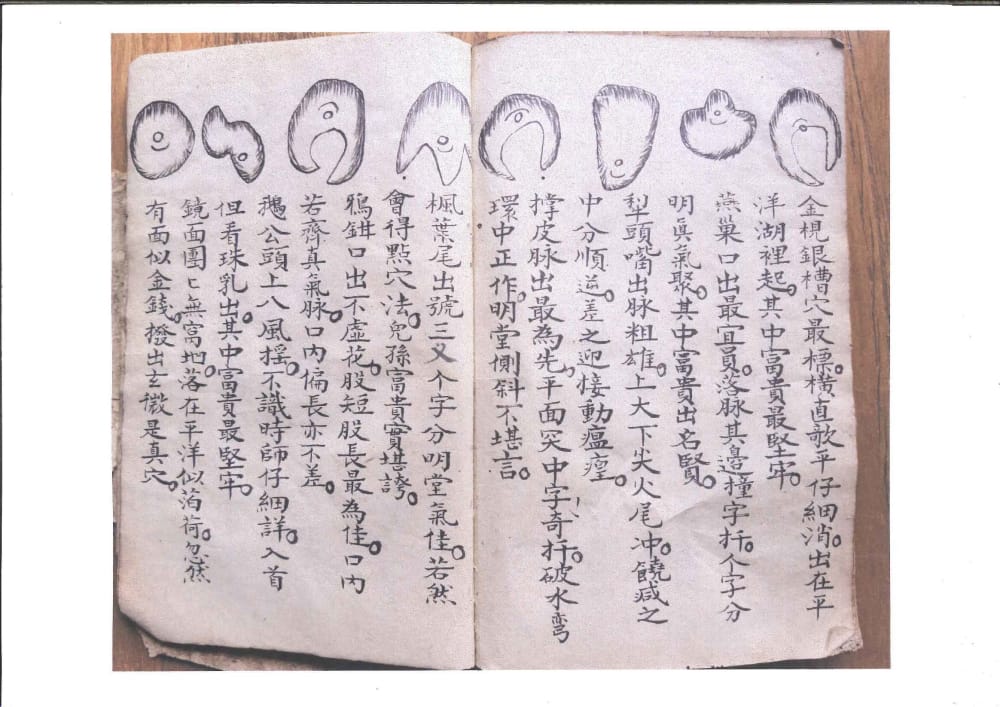 金梘銀槽穴最標。橫直欹平仔細消。出在平
洋湖裡起。其中富貴最堅牢。
燕巢口出最宜員。落脉其邊撞字扦。个字分
明真氣聚。其中富貴出名賢。
犁頭嘴出脉粗雄。上大下尖火尾冲。饒減之
中分順逆。差之迎接動瘟𤶊。
撑皮脉出最為先。平面突中字奇扦。破水弯
環中正作。明堂側斜不堪言。
楓葉尾出號三义个字分明堂氣佳。若然
會得點穴法。兒孫富貴實堪誇。
鴉鉗口出不虛花。股短股長最為佳。口內
若齊真氣脉。口內偏長亦不差。
鵝公頭上八風摇。不識時師仔細詳。入首
但看珠乳出。其中富貴最堅牢。
鏡面團匕無窩地。落在平洋似萡荷。忽然
有面似金錢。撥出玄微是真穴。